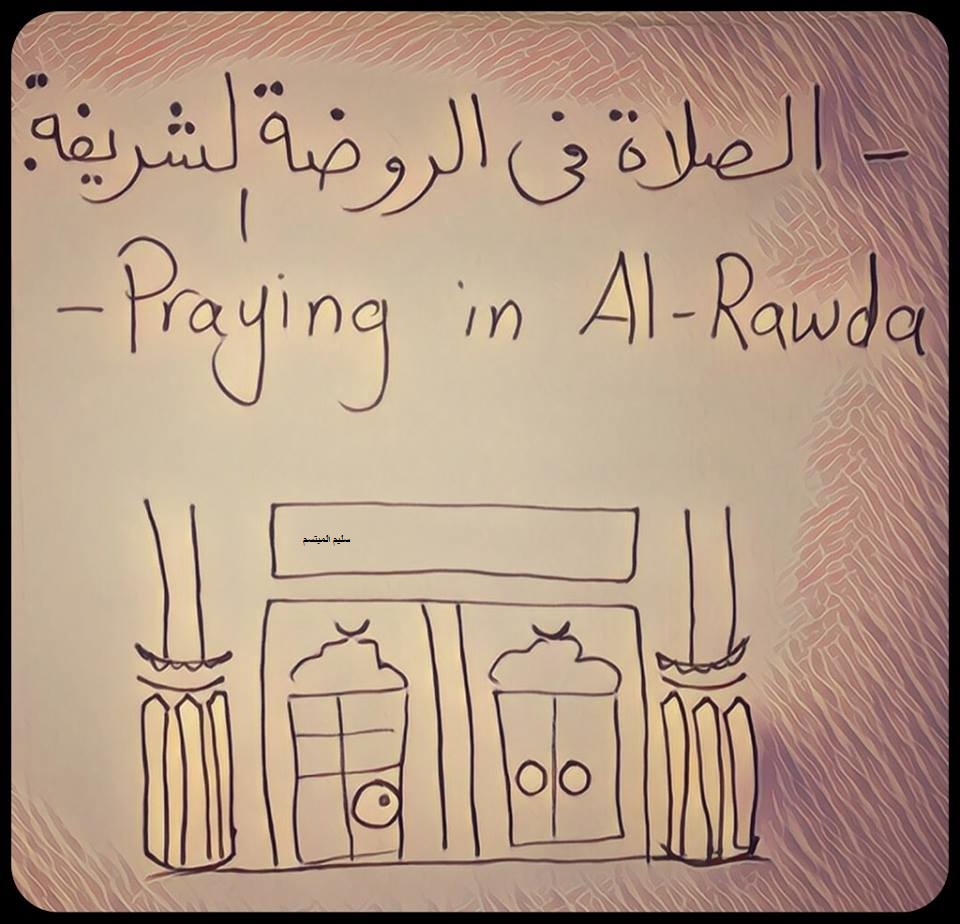 - الصلاة فى الروضة الشريفة.
- Praying in Al-Rawda
سليم المبتسم